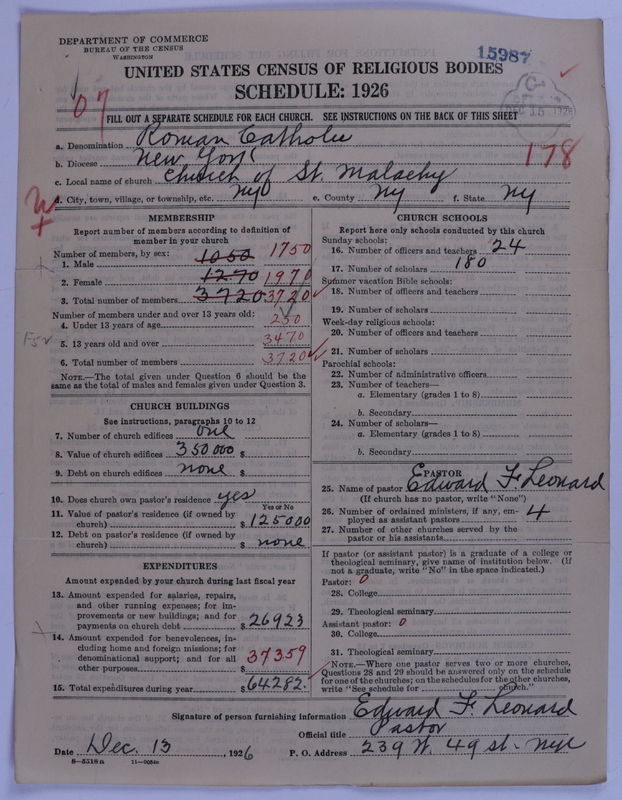 DEPARTMENT OF COMMERCE
BUREAU OF THE CENSUS
WASHINGTON
15987
UNITED STATES CENSUS OF RELIGIOUS BODIES
SCHEDULE: 1926
07
DEC 15 1926
FILL OUT A SEPARATE SCHEDULE FOR EACH CHURCH. SEE INSTRUCTIONS ON THE BACK OF THIS SHEET
a. Denomination Roman Catholic
b. Diocese New York
178
c. Local name of church Church of St. Malachy
d. City, town, village, or township, etc. NYC e. County NY f. State NY
MEMBERSHIP
Report number of members according to definition of
member in your church
Number of members, by sex:
1. Male 1050 1750
2. Female 1270 1970
3. Total number of members 3720 3720
Number of members under and over 13 years old:
4. Under 13 years of age 250
5. 13 years old and over 3470
6. Total number of members 3720
NOTE.—The total given under Question 6 should be the
same as the total of males and females given under Question 3.
CHURCH BUILDINGS
See instructions, paragraphs 10 to 12
7. Number of church edifices one
8. Value of church edifices 350000 $
9. Debt on church edifices none $
10. Does church own pastor's residence yes
Yes or No
11. Value of pastor's residence (if owned by
church) $ 125000
12. Debt on pastor's residence (if owned by
church) $ none
EXPENDITURES
Amount expended by your church during last fiscal year
13. Amount expended for salaries, repairs,
and other running expenses; for im-
provements or new buildings; and for
payments on church debt $ 26923
14. Amount expended for benevolences, in-
cluding home and foreign missions; for
denominational support; and for all
other purposes $ 37359
15. Total expenditures during year $ 64282.
CHURCH SCHOOLS
Report here only schools conducted by this church
Sunday schools:
16. Number of officers and teachers 24
17. Number of scholars 180
Summer vacation Bible schools:
18. Number of officers and teachers
19. Number of scholars
Week-day religious schools:
20. Number of officers and teachers
21. Number of scholars
Parochial schools:
22. Number of administrative officers
23. Number of teachers—
a. Elementary (grades 1 to 8)
b. Secondary
24. Number of scholars—
a. Elementary (grades 1 to 8)
b. Secondary
PASTOR
25. Name of pastor Edward F. Leonard
(If church has no pastor, write "None")
26. Number of ordained ministers, if any, em-
ployed as assistant pastors 4
27. Number of other churches served by the
pastor or his assistants
If pastor (or assistant pastor) is a graduate of a college or
theological seminary, give name of institution below. (If
not a graduate, write "No" in the space indicated.)
Pastor: 0
28. College
29. Theological seminary
Assistant pastor: 0
30. College
31. Theological seminary
NOTE.—Where one pastor serves two or more churches,
Questions 28 and 29 should be answered only on the schedule
for one of the churches; on the schedules for the other churches,
write "See schedule for church."
Signature of person furnishing information Edward F. Leonard
Official title Pastor
Date Dec. 13, 1926 P. O. Address 239 W. 49 st. NYC
8—5518a 11—9084a